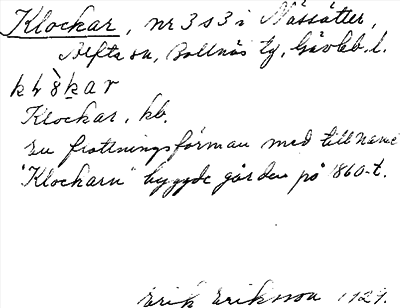 Klockar, nr 3 s 3 i Nässätter,
Alfta sn, Bollnäs tg, Gävleb. l.
Klockar, kb.
En flottningsförman med tillnamnet
"Klockarn" byggde gården på 1860-t.
Erik Eriksson 1929.